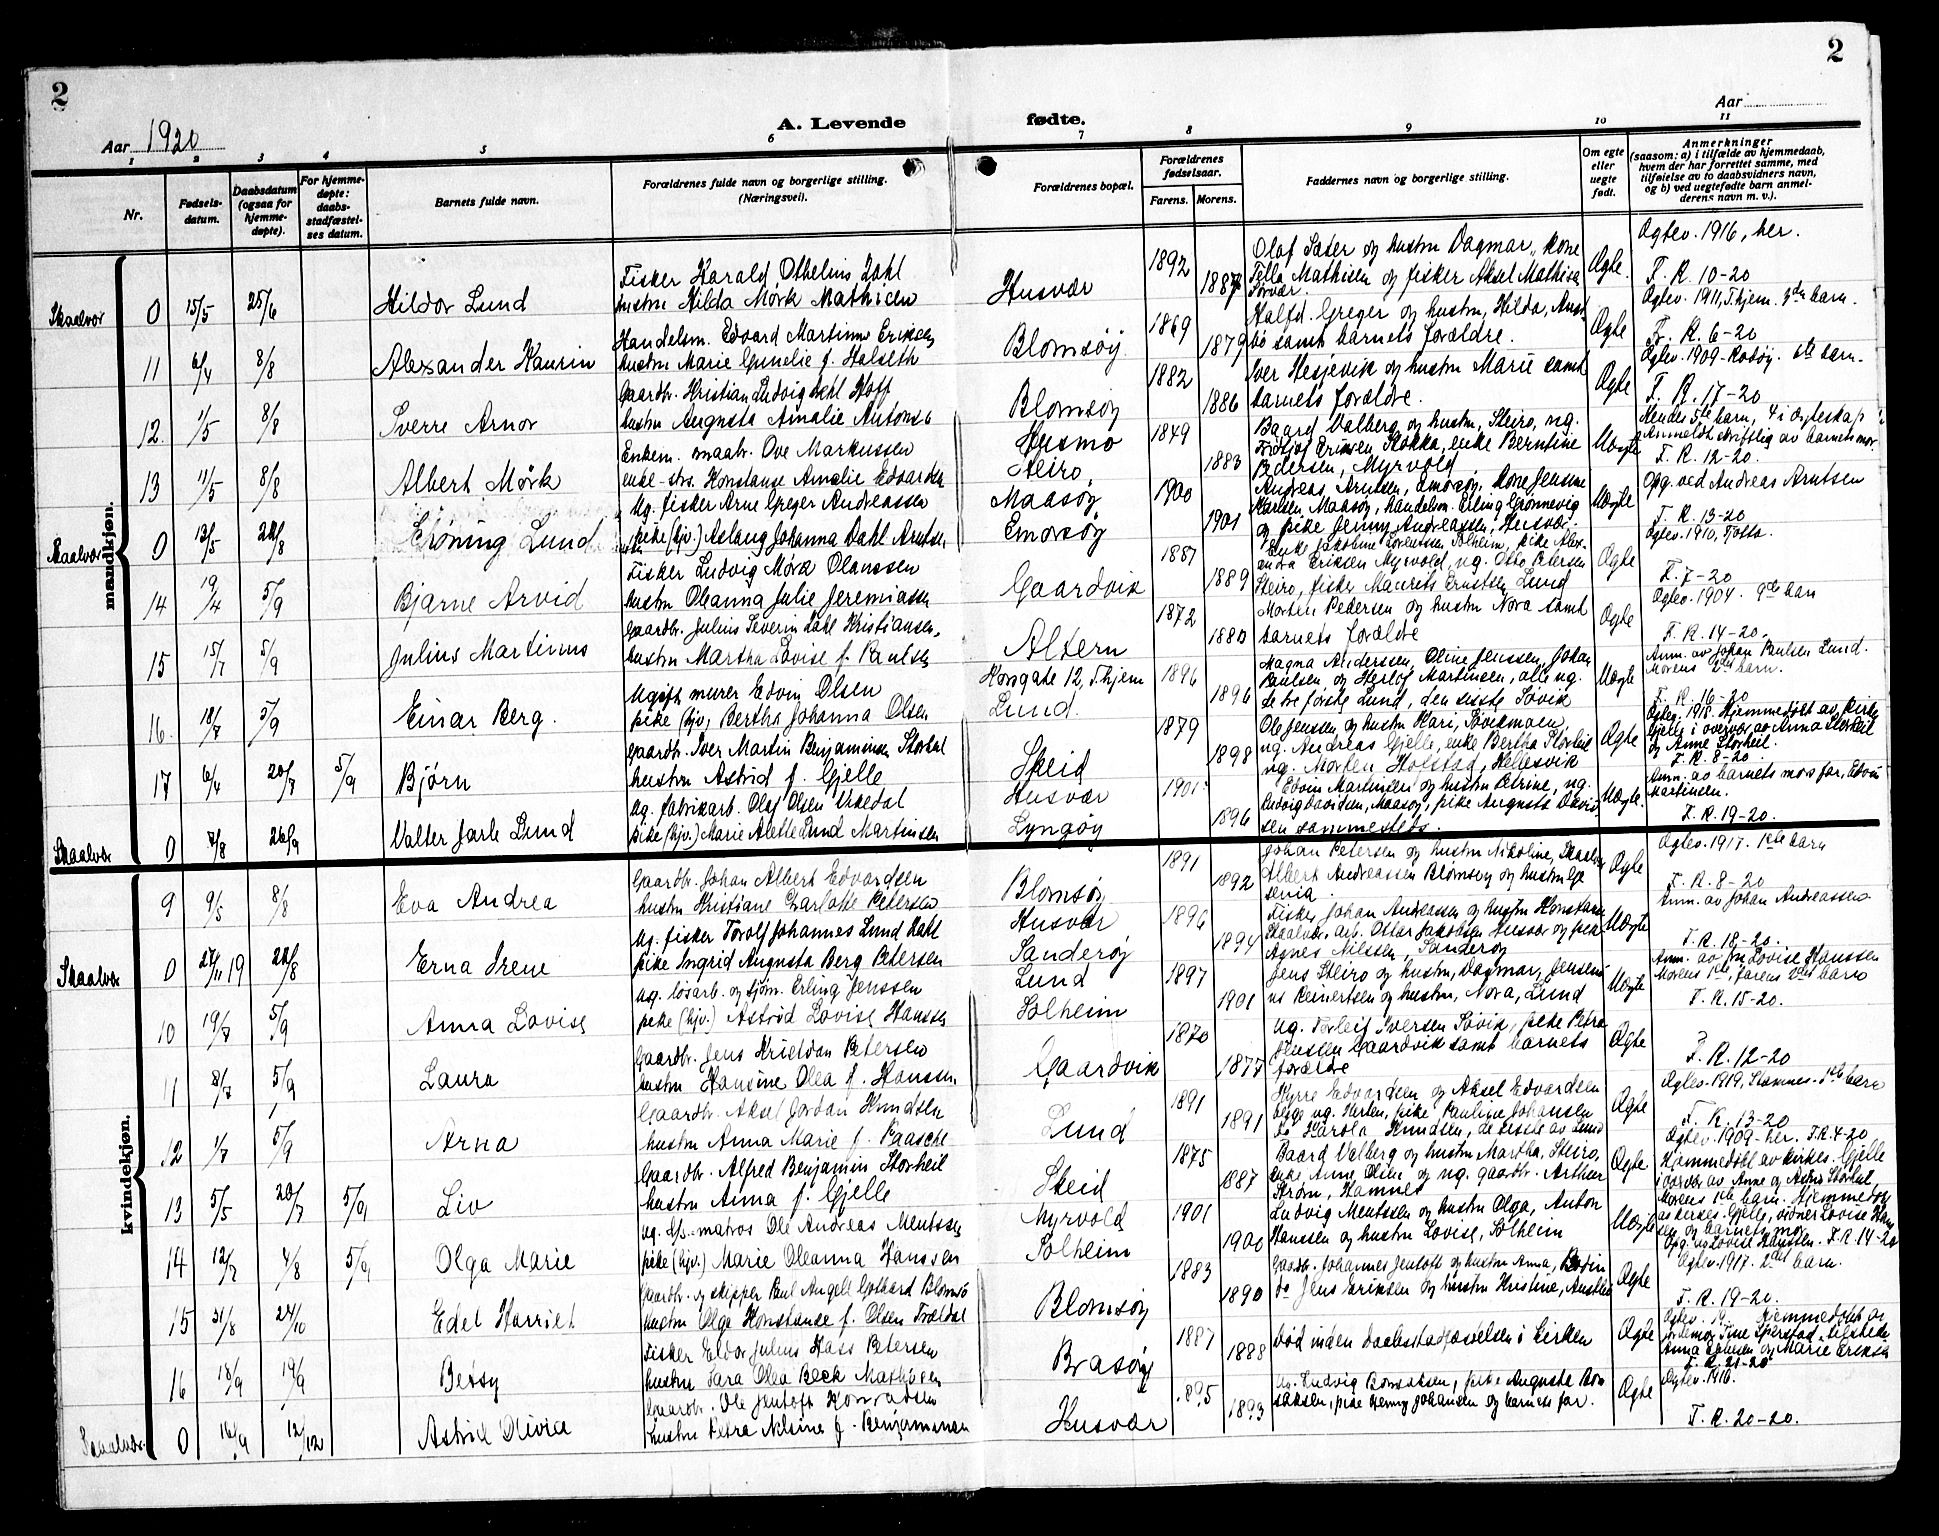 2
2
Aar 1920
A. Levende fødte.
Aar
1 2 3 4 5 6 7 8 9 10 11
Nr.
Fødsels-datum.
Daabsdatum (ogsaa for hjemme-døpte).
For hjemme-døpte: daabs-stadfæstel-ses datum.
Barnets fulde navn.
Forældrenes fulde navn og borgerlige stilling. (Næringsvei).
Forældrenes bopæl.
Forældrenes fødselsaar.
Farens. Morens.
Faddernes navn og borgerlige stilling.
Om egte eller uegte født.
Anmerkninger
(saasom: a) i tilfælde av hjemmedaab, hvem der har forrettet samme, med tilføielse av to daabsvidners navn, og b) ved uegtefødt barn anmelderens navn m. v.).
mandkjøn.
Skaalvær 0 15/5 25/6 Hildor Lund
Fisker Harald Othelius Dahl
hustru Hilda Mørk Mathisen
Husvær 1892 1887
Olaf Sæter og hustru Dagmar, kone
Mathisen og fisker Aksel Mathisen
Ægte.
Ægtev. 1916, her.
F. R. 10-20
11 6/4 8/8 Alexander Kaurin
Handelsm. Edvard Martinus Eriksen
hustru Marie Gunelie f. Halseth
Blomsøy 1869 1879
Greger og hustru, Hilda,
samt barnets forældre.
Ægte
Ægtev. 1911, T.hjem. 3die barn.
F. R. 6-20
12. 1/5 8/8 Sverre Arnor
Gaardbr. Kristian Ludvig Dahl Hoff
hustru Augusta Amalie Antons
Blomsøy 1882 1886
Iver Hesjevik og hustru Marie samt
barnets forældre.
Ægte
Ægtev. 1909- Rødøy. 6te barn.
F. R. 17-20
13 11/5 8/8 Albert Mørk
Enkem. maabr. Ove Markussen
enke Konstanse Amalie Edvardsen
Husmo
Steiro, 1849 1883
Baard Valberg og hustru, Steiro, ug.
Fritjof Eriksen Stokka, enke Berntine
Pedersen, Myrvold
Uægte
Hendes 5te barn, 4 i ægteskap
Anmeldt skriftlig av barnets mor.
F. R. 12-20.
Skaalvær 0 13/5 22/8 Grøning Lund
Ug. fisker Arne Greger Andreassen
pike (hjv.) Aslaug Johanna Dahl Arntsen
Maasøy
Emarsøy 1900 1901
Andreas Arntsen, Emarsøy, kone Jensine
Karlsen, Maasøy, handelsm. Erling Grønnevig
og pike Jenny Andreassen, Husvær.
Uægte
Opg. ved Andreas Arntsen
F. R. 13-20
14 19/4 5/9 Bjarne Arvid
Fisker Ludvig Mørk Olaussen
hustru Oleanna Julie Jeremiassen
Gaardvik 1887 1889
Enke Jakobine Lorentsen Solheim, pike Alex-
andra Eriksen Myrvold, ug. Otto Petersen
Steiro, fisker Maurits Erntsen Lund
Ægte
Ægtev. 1910, Tjøtta.
F. 7-20
15 15/7 5/9 Julius Martinus
Gaardbr. Julius Severin Dahl Kristiansen,
hustru Martha Lovise f. Paulsen
Altern 1872 1880
Morten Pedersen og hustru Nora samt
barnets forældre
Ægte
Ægtev. 1904. 9de barn
F. R. 14-20.
16. 18/7 5/9 Einar Berg.
Ugift murer Edvin Olsen
pike (hjv.) Bertha Johanna Olsen
Korsgate 12, T.hjem
Lund. 1896 1896
Magna Anderssen, Oline Jenssen, Johan
Paulsen og Herlof Martinsen, alle ug.
de tre første Lund, den siste Søvik
Uægte
Anm. av Johan Paulsen Lund.
Morens 2det barn.
F. R. 16-20
17 6/4 20/7 5/9 Bjørn
Gaardbr. Iver Martin Benjaminsen Storheil
hustru Astrid f. Gjelle
Skeid 1879 1898
Ole Jenssen og hustru Kari, Søvikmoen,
ug. Andreas Gjelle, enke Bertha Storheil
ug. Morten Holstad, Hellesvik
Ægte
Ægtev. 1918. Hjemmedøbt av kirkes.
Gjelle i overvær av Anna Storheil
og Anne Storheil.
F. R. 8-20.
Skaalvær 0 7/8 26/9 Valter Jarle Lund
Ug. fabrikarb. Olaf Olsen
pike (hjv.) Marie Alette Lund Martinsen
Husvær
Lyngøy 1901 1896
Edvin Martinsen og hustru Petrine, ug.
Ludvig Davidsen, Maasøy, pike Augusta David-
sen sammesteds.
Uægte.
Anm. av barnets morsfar, Edvin
Martinsen.
F. R. 19-20.
kvindekjøn.
9 9/5 8/8 Eva Andrea
Gaardbr. Johan Albert Edvardsen
hustru Kristiane Charlotte Petersen
Blomsøy 1891 1892
Johan Petersen og hustru Nikoline, Skaalvær
Albert Andreassen Blomsøy og hustru
Ægte
Ægtev. 1917. 1ste barn
F. R. 8-20
Skaalvær 0 27/11 19 22/8 Erna Irene
Ug. fisker Torolf Johannes Lund Dahl
pike Ingrid Augusta Berg Petersen
Husvær
Sanderøy 1896 1894
Fisker Johan Andreassen og hustru Konstanse
Skaalvær, arb. Ottar Jakobsen Husvær og pike
Agnes Nilssen, Sanderøy
Uægte
Anm. av Johan Andreassen
F. R. 18-20.
10 19/7 5/9 Anna Lovise
Ug. løsarb. og tjen. Erling Jenssen
pike (hjv.) Astrid Lovise Hanssen
Lund
Solheim 1897 1901
Jens Steiro og hustru, Dagmar, Jensen
Reinertsen og hustru, Nora, Lund
Uægte
Anm. av Lovise Hanssen
Morens 1ste, farens 2det barn
F. R. 15-20.
11 8/7 5/9 Laura
Gaardbr. Jens Kristian Petersen
hustru Hansine Olea f. Hanssen.
Gaardvik 1870 1877
Ug. Torleif Iversen Søvik, pike Petra
Jenssen Gaardvik samt barnets
forældre
Ægte
F. R. 12-20
12 1/7 5/9 Arna
Gaardbr. Aksel Jordan Knudsen
hustru Anna Marie f. Paasche
Lund 1891 1891
Kyrre Edvardsen og Aksel Edvardsen
begge ug. Herten, pike Pauline Johansen
do Karola Knudsen, de siste av Lund
Ægte
Ægtev. 1919, Stamnes. 1ste barn
F. R. 13-20
13 5/5 20/7 5/9 Liv
Gaardbr. Alfred Benjamin Storheil
hustru Anna f. Gjelle
Skeid 1875 1887
Baard Valberg og hustru Martha, Steiro,
enke Anne Olsen og ug. gaardbr. Arthur
Strøm, Hamnes
Ægte
Ægtev. 1909- her. F.R. 4-20
Hjemmedøbt av kirkes. Gjelle
i overvær av Anne og Astrid Storheil
14 12/7 4/8 5/9 Olga Marie
Ug. matros Ole Andreas Mentssen
pike (hjv.) Marie Oleanna Hanssen
Myrvold
Solheim 1901 1900
Ludvig Mentssen og hustru Olga, Anton
Hanssen og hustru Lovise, Solheim
Uægte
Morens 1ste barn. Hjemmedøbt
av kirkes. Gjelle, vidner Lovise Hans
sen og barnets mor
Opg. ug Lovise Hanssen. F. R. 14-20
15 31/8 24/10 Edel Harriet
Gaardbr. og skipper Paul Angell Gothard Blomsø
hustru Olga Konstanse f. Olsen Trældal
Blomsøy 1883 1890
Gaardbr. Johannes Jentoft og hustru Anna,
do Jens Eriksen og hustru Kristine, Austbø
Ægte
Ægtev. 1917. 2det barn.
F. R. 19-20.
16 18/9 19/9 Bessy
Fisker Eldor Julius Hass Petersen
hustru Sara Olea Beck Mathisen
Brasøy 1887 1888
Død inden daabsstadfæstelsen i kirken
Ægte
Ægtev. 19 . Hjemmedøbt av
jordemor Tine Sperstad, tilstede
Anna og Marie Eriksen
F. R. 21-20
Skaalvær. 0 16/9 12/12 Astrid Olivia
Gaardbr. Ole Jentoft Konradsen
hustru Petra Nilsine f. Benjaminsen
Husvær 1895 1893
Ug. Ludvig Bonsaksen, pike Augusta Bon
saksen, pike Henny Johansen og barnets far.
Ægte
Ægtev. 1916.
F. R. 20-20.